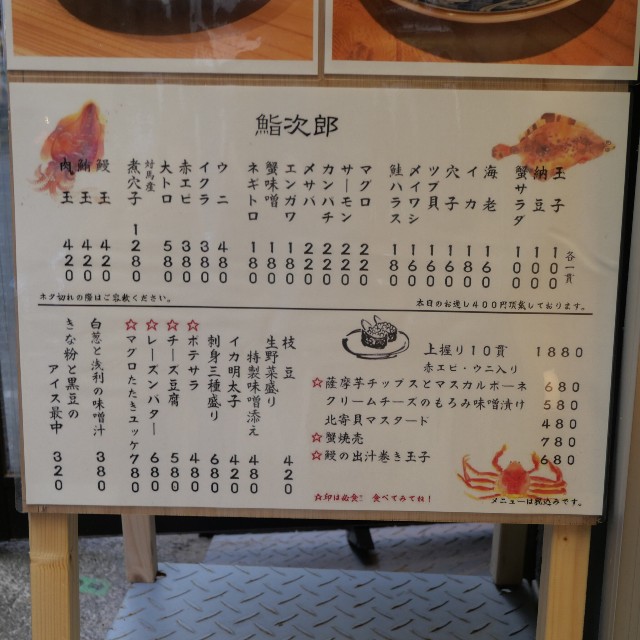 鮨次郎
各一貫
玉子 100
納豆 100
蟹サラダ 100
海老 160
イカ 180
穴子 160
ツブ貝 160
メイワシ
鮭ハラス 180
マグロ 220
サーモン 220
カンパチ 220
メサバ 220
エンガワ 180
蟹味噌 180
ネギトロ 180
ウニ 480
イクラ 380
赤エビ 380
大トロ 580
対馬産
煮穴子 1280
鰻玉 420
鮪玉 420
肉玉 420
ネタ切れの際はご容赦ください。
本日のお通し400円頂戴しております。
上握り10貫 1880
赤エビ・ウニ入り
☆薩摩芋チップスとマスカルポーネ 680
クリームチーズのもろみ味噌漬け 580
北寄貝マスタード 480
☆蟹焼売 780
☆鰻の出汁巻き玉子 680
☆印は必食!! 食べてみてね!
メニューは税込みです。
枝豆 420
生野菜盛り
特製味噌添え 480
イカ明太子 420
刺身三種盛り 680
☆ポテサラ 480
☆チーズ豆腐 580
☆レーズンバター 680
☆マグロたたきユッケ 780
白葱と浅利の味噌汁 380
きな粉と黒豆の
アイス最中 320